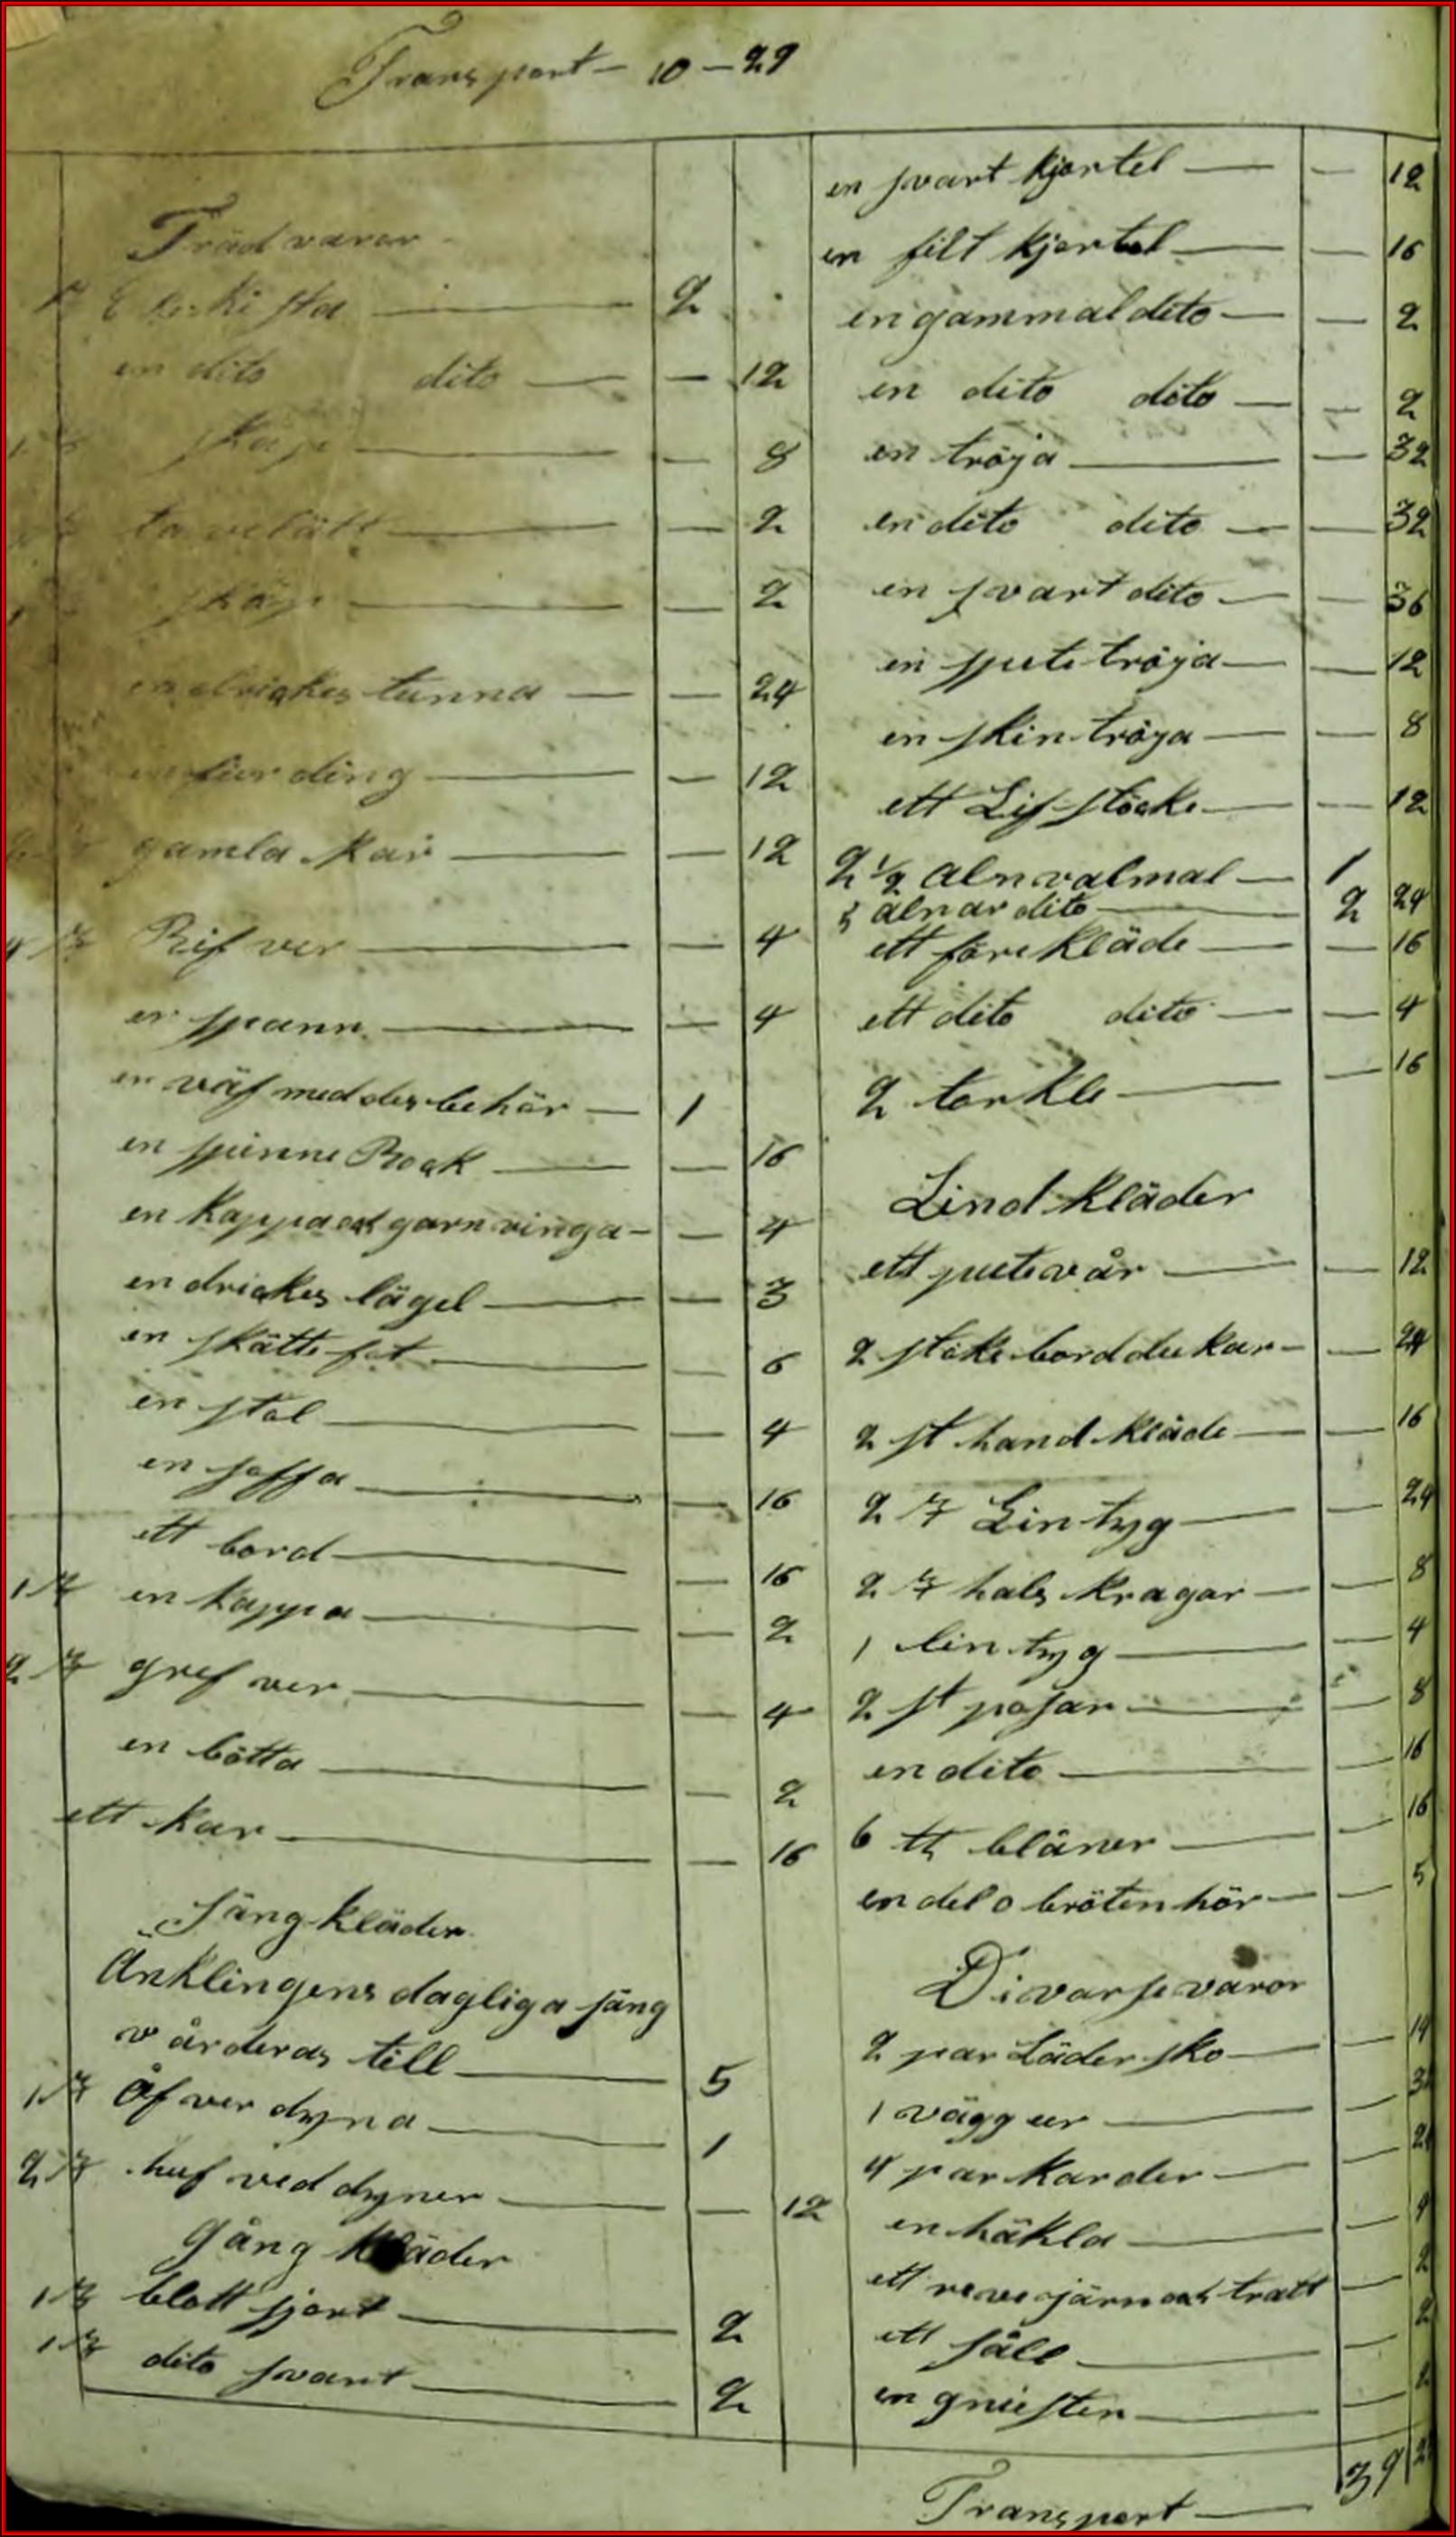 Transport — 10 — 29
Trädvaror
kista — 2
en dito dito — — 12
1 st skåp — — 8
tavelätt — — 2
skåp — — 2
en drickes tunna — — 24
en fierding — — 12
gamla kar — — 12
4 st Rif ver — — 4
en spann — — 4
en väf med des behör — 1
en spinne Rock — — 16
en kappa och garn vinga — — 4
en drickes lägel — — 3
en skätte fat — — 6
en stol — — 4
en soffa — — 16
ett bord — — 16
1 st en kappa — — 2
2 st gref ver — — 4
en bötta — — 2
ett kar — — 16
Sängkläder
Anklingens dagliga säng
vårderas till — 5
1 st Öf ver dyna — 1
2 st huf ved dyner — — 12
Gång kläder
1 st blott sjort — 2
1 st dito svart — 2
en svart kjortel — — 12
en filt kjortel — — 16
en gammal dito — — 2
en dito dito — — 2
en tröja — — 32
en dito dito — — 32
en svart dito — — 36
en spets tröja — — 12
en skin tröya — — 8
ett Lif stöcke — — 12
2 1/2 aln valmal — 1
5 alnar dito — 2 24
ett före kläde — — 16
ett dito dito — — 4
2 torkle — — 16
Lind kläder
ett putevår — — 12
2 stöke bord dukar — — 24
2 st hand kläde — — 16
2 st Lin tyg — — 24
2 st hals kragar — — 8
1 lin tyg — — 4
2 st posar — — 8
en dito — — 16
6 ℔ blåner — — 16
en del o bröten hör — — 5
Divarse varor
2 par Läder sko — —
1 vägg ur — —
4 par karder — —
en häkla — —
ett rivejärn och tratt —
ett såll — —
en gniesten — —
Transport — 39